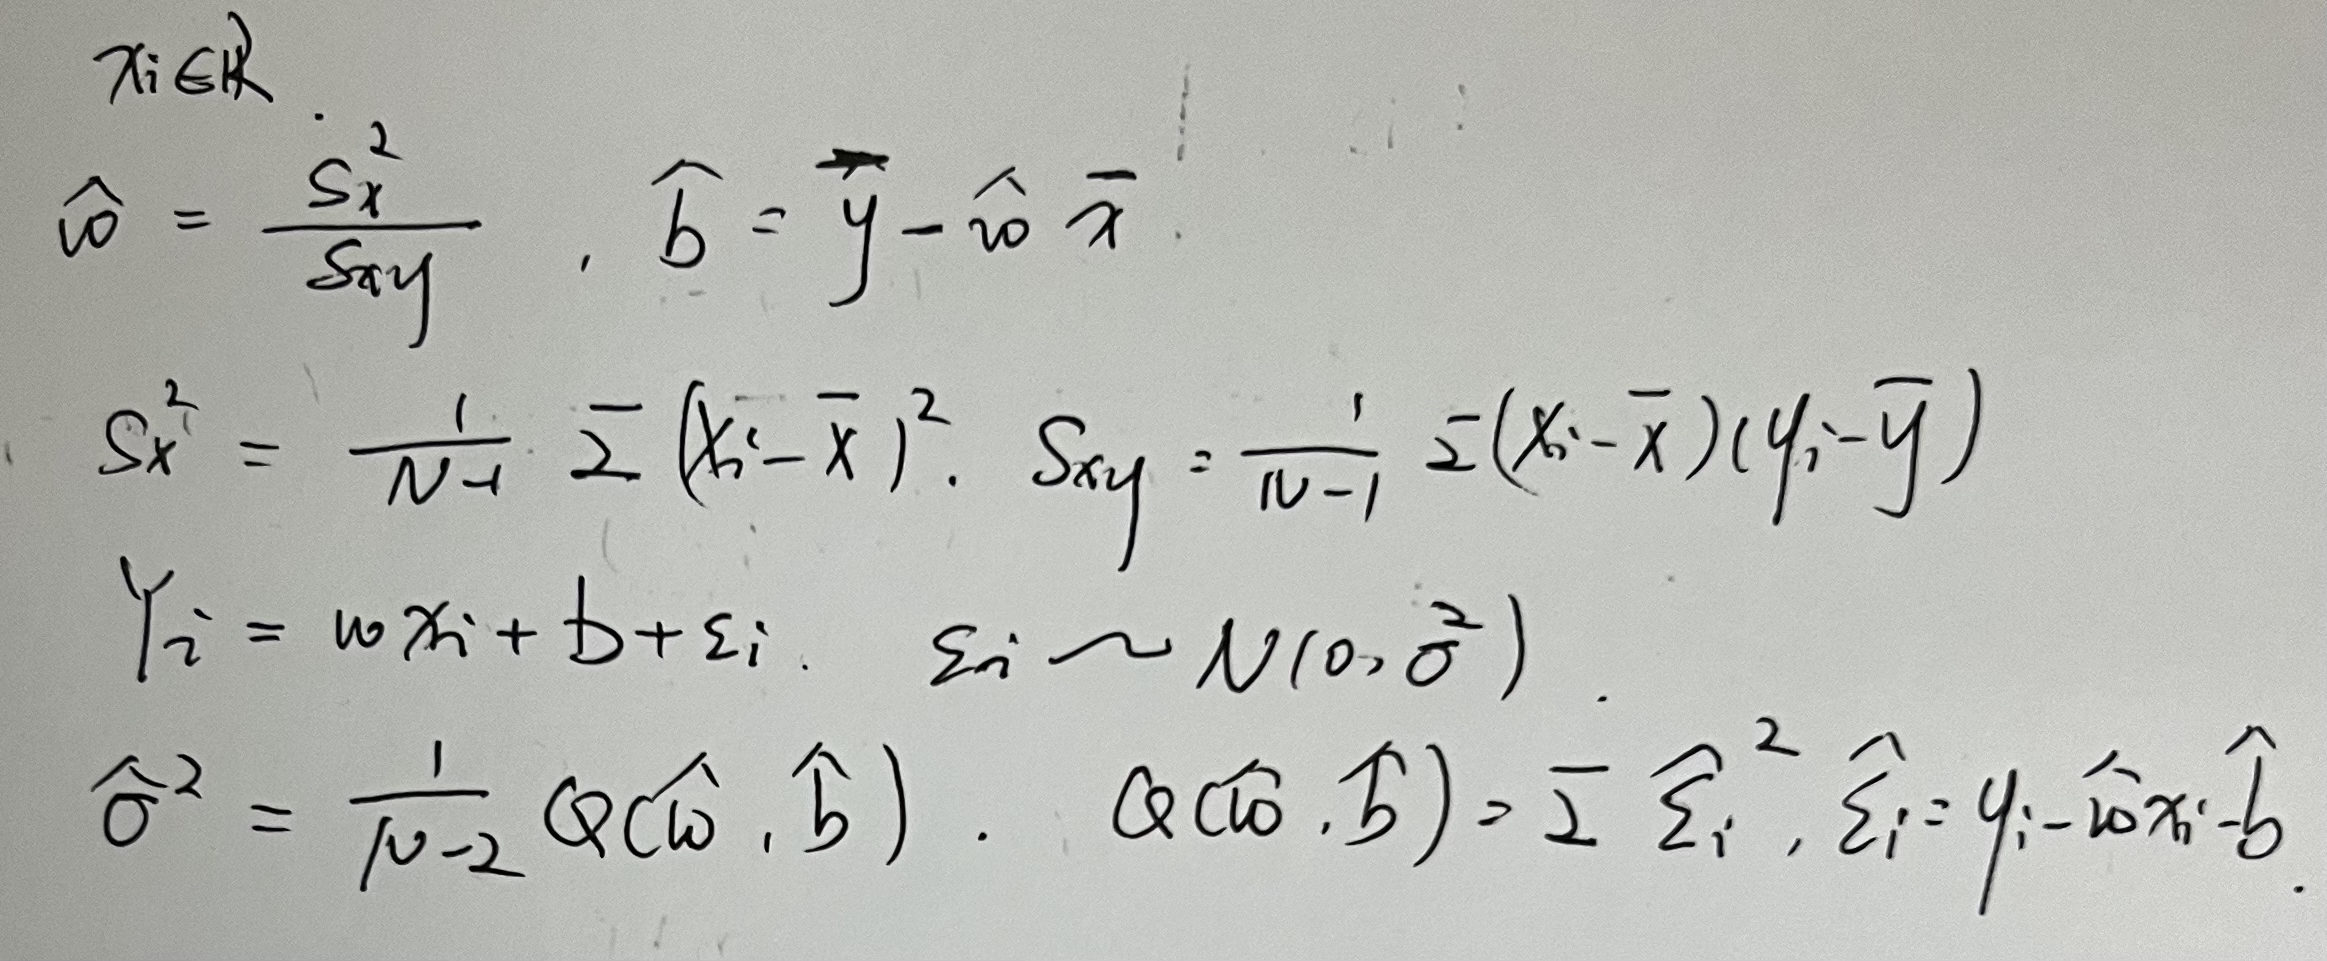 xi∈ℝ.
ŵ = Sx² / Sxy , b̂ = ȳ - ŵ x̄.
Sx² = 1/(N-1) Σ(xi - x̄)². Sxy = 1/(N-1) Σ(xi - x̄)(yi - ȳ)
Yi = wxi + b + εi. εi ~ N(0, σ²).
σ̂² = 1/(N-2) Q(ŵ, b̂). Q(ŵ, b̂) = Σ ε̂i², ε̂i = yi - ŵxi - b̂.